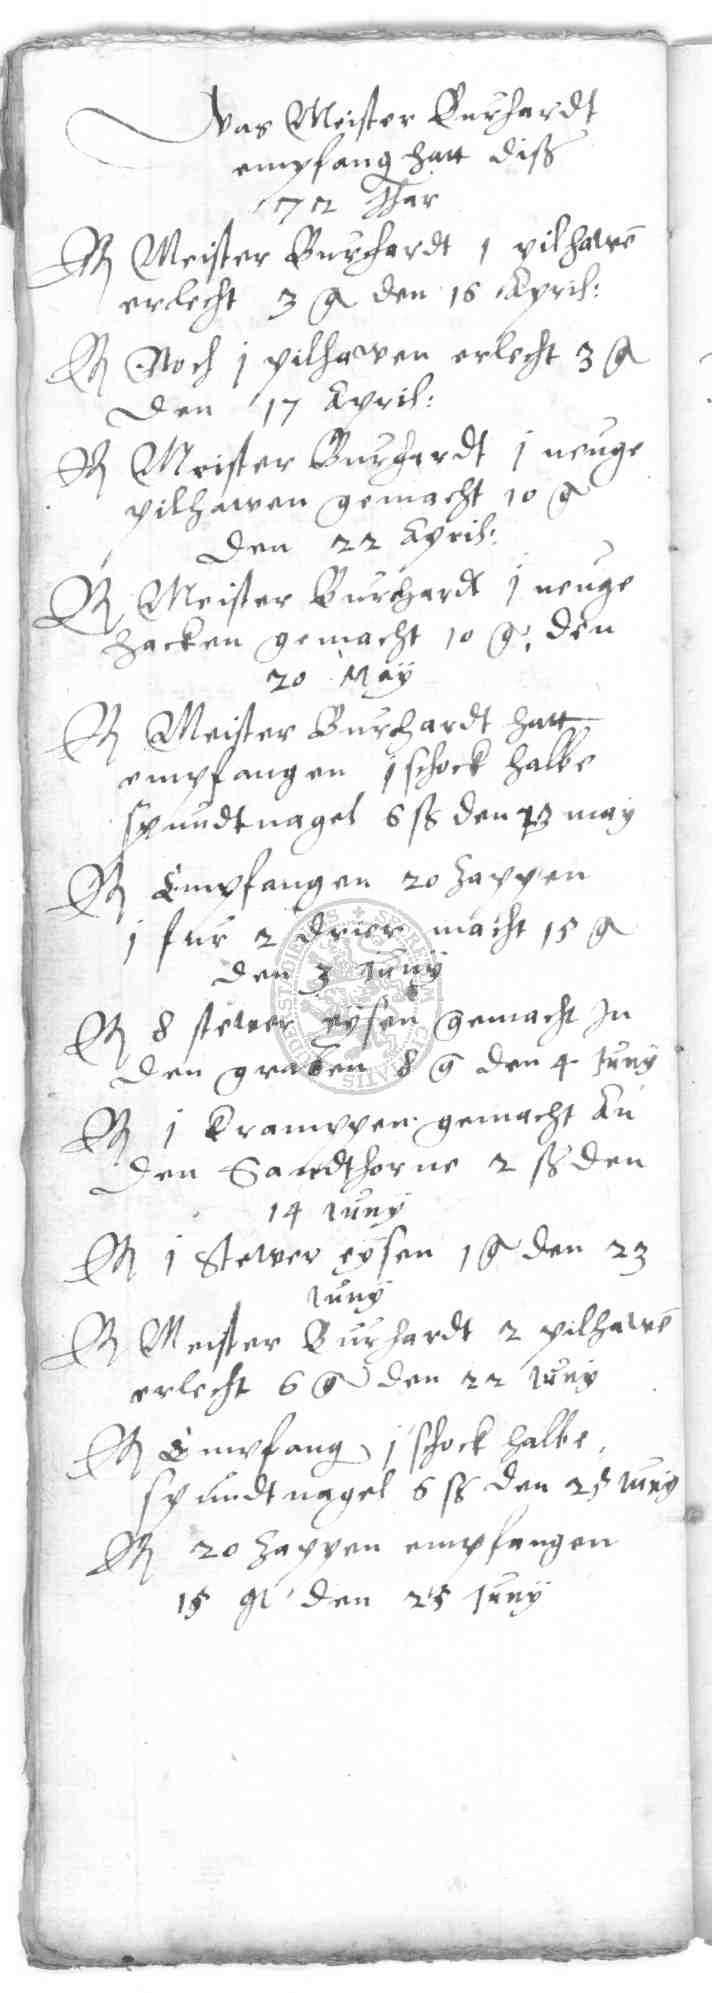 Was Meister Burchardt
empfang hatt diss
72 Jhar
R Meister Burchardt 1 pilhawē
erlecht 3 g den 16 April:
R Noch j pilhawen erlecht 3 g
den 17 April:
R Meister Burchardt j neuge
pilhawen gemacht 10 g
den 22 April:
R Meister Burchardt j neuge
hacken gemacht 10 g, den
20 May
R Meister Burchardt hatt
empfangen 1 schock halbe
spundtnagel 6 ß den 23 may
R Empfangen 20 zappen
j fur 2 drier macht 15 g
den 3 Juny
R 8 stewer eysen gemacht In
den graben 8 g den 4 Juny
R j Kramppen gemacht An
den Sandthorne 2 ß den
14 Juny
R j Stewer eysen 1 g den 23
Juny
R Meister Burchardt 2 pilhawē
erlecht 6 g den 22 Juny
R Empfang j schock halbe
spundtnagel 6 ß den 25 Juny
R 20 zappen empfangen
15 gl den 25 Juny